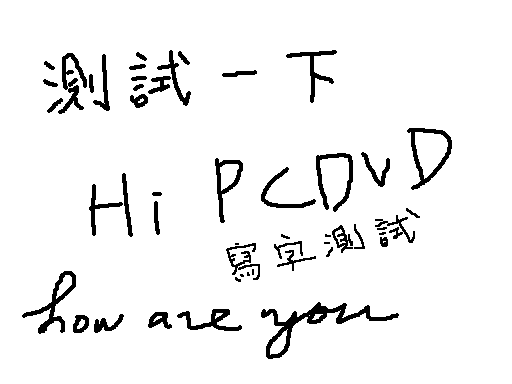 測試一下
Hi PCDVD
寫字測試
how are you